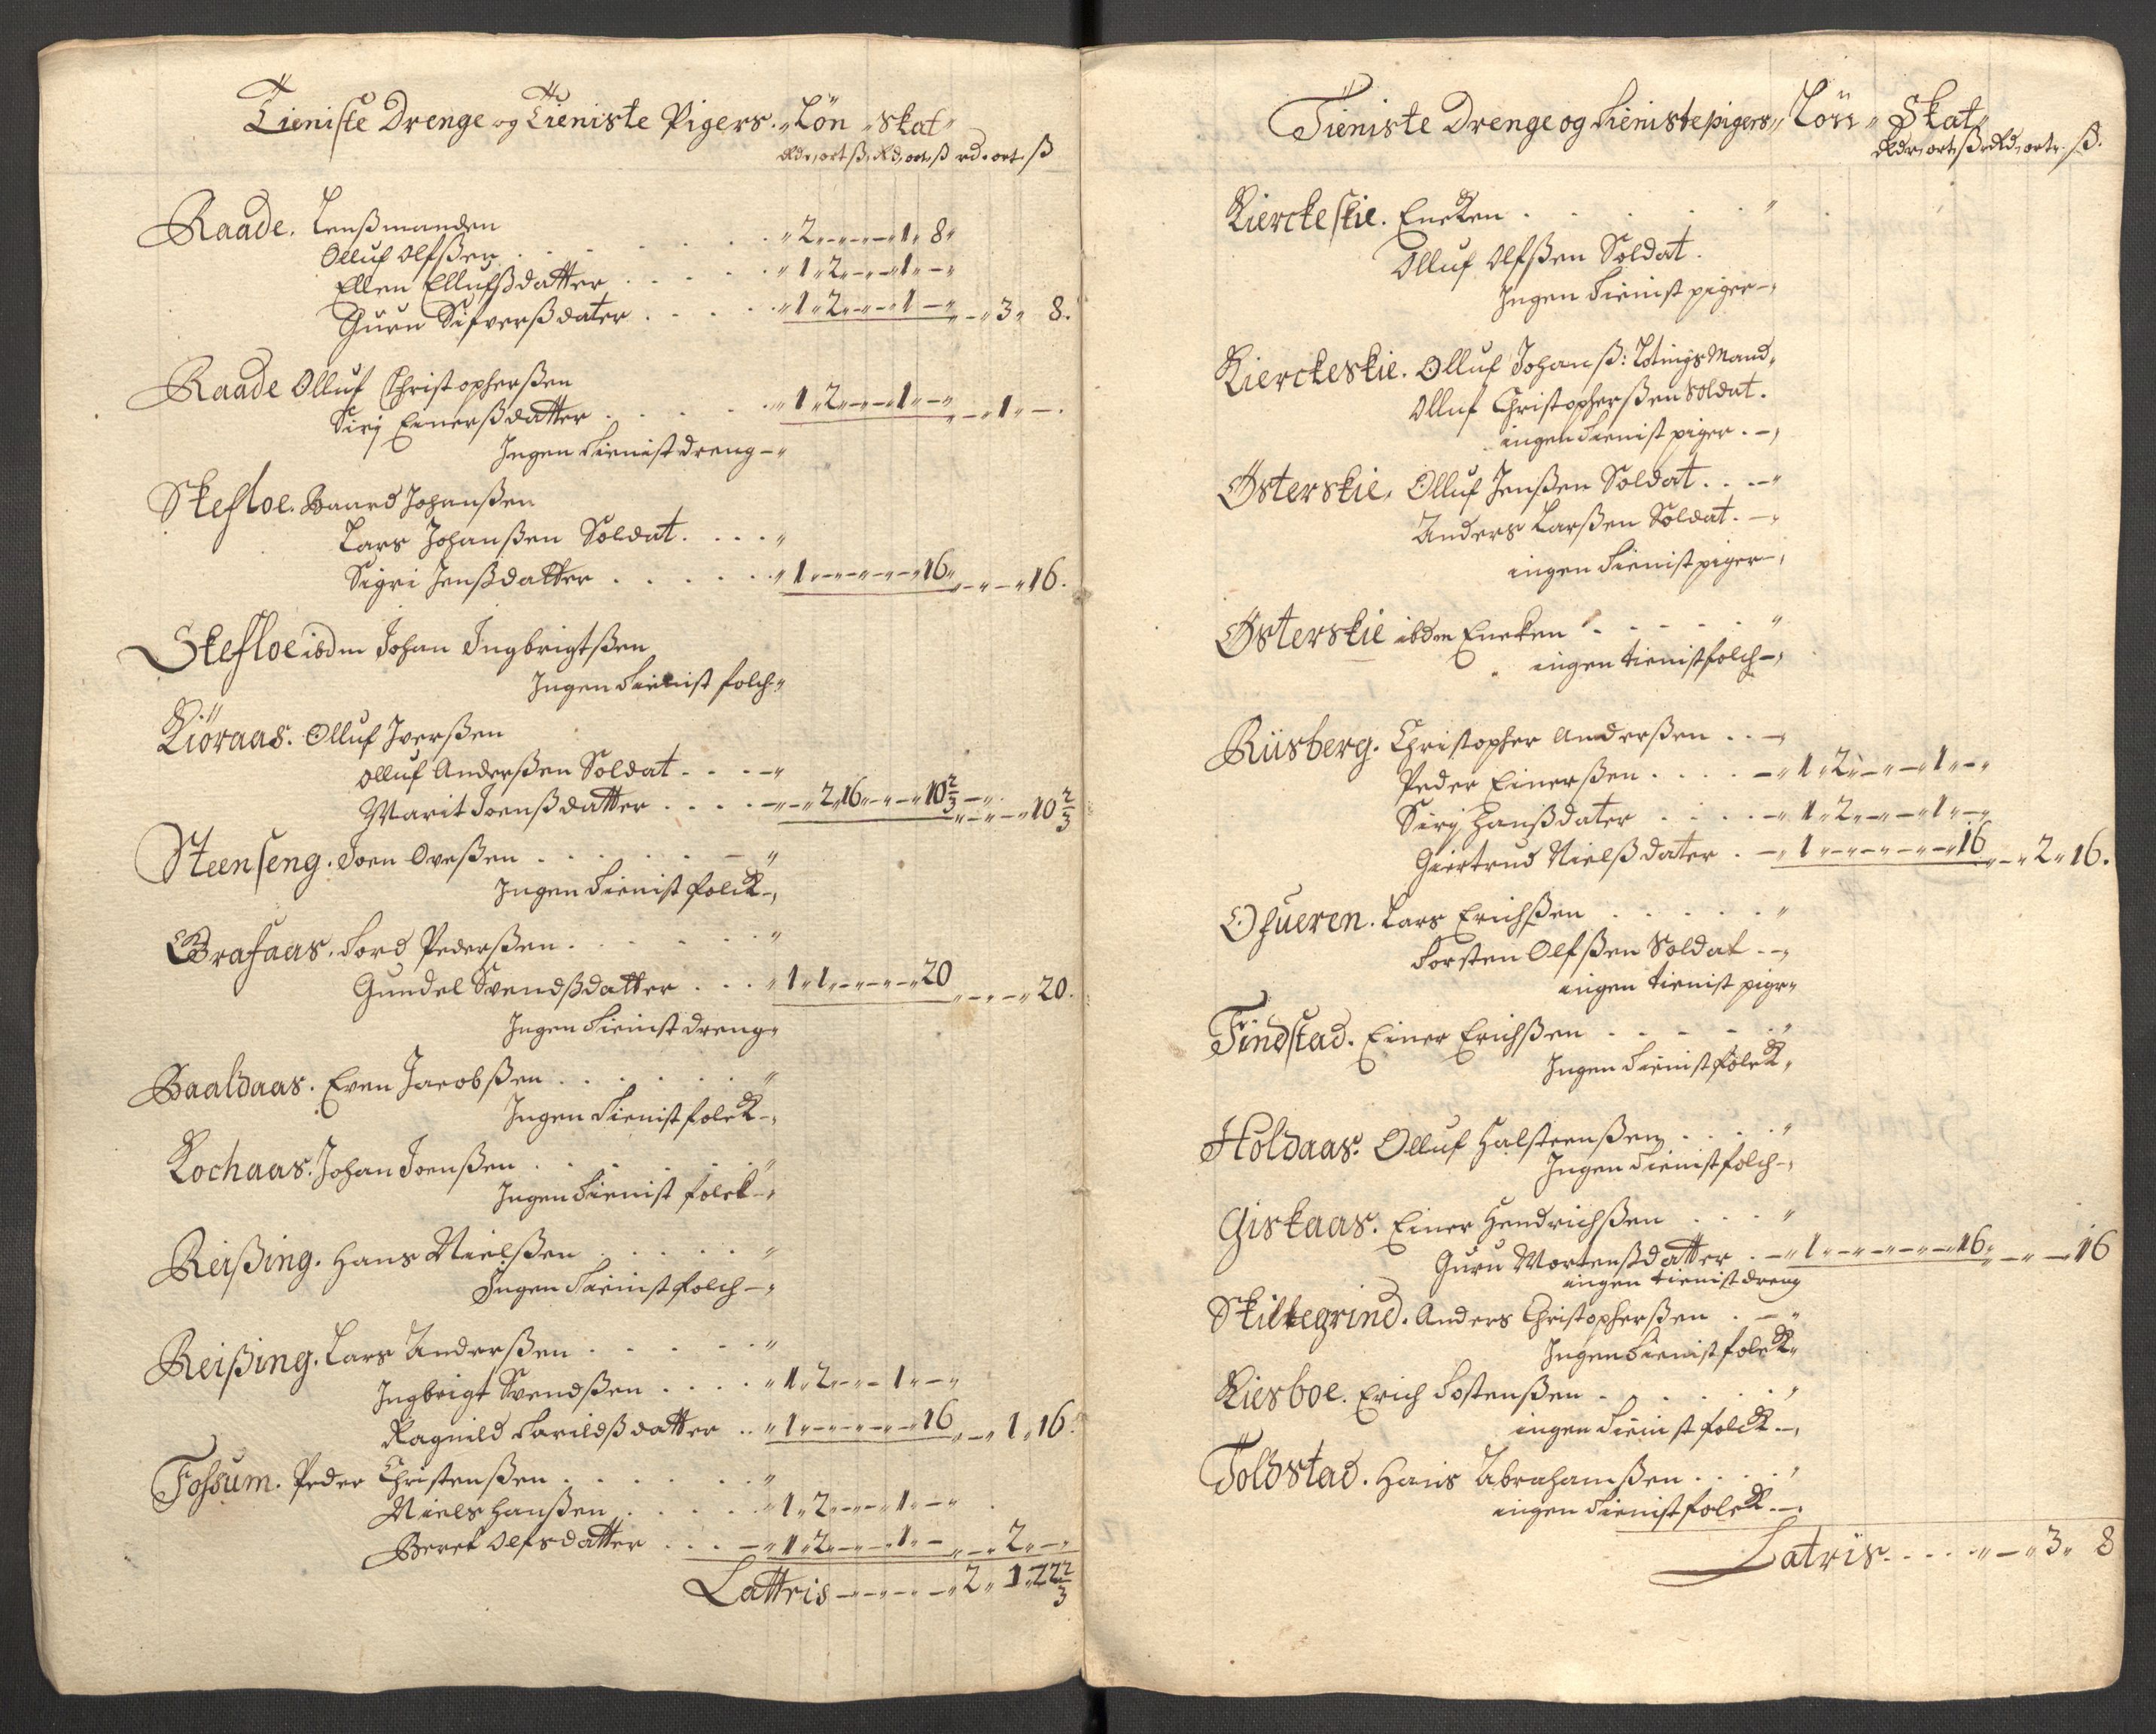 Tieniste Drenge og Tieniste Pigers. „Lön „Skat„
Rdr, ort ß, Rd, ort, ß rd. ort. ß
Raade. Lenßmanden
Olluf Olfßen . . . . . . „2„-„-„-„1„8„
Ellen Ellufßdatter . . . . „1„2„-„-„1„-„
Guru Sifverßdater . . . . „1„2„-„-„1„-„ „-„3„ 8.
Raade Olluf Christopherßen
Sirj Einerßdatter . . . . „1„2„-„-„1„-„ „-„1„-.
Ingen Tienist dreng-„
Skefloe. Baard Johanßen
Lars Johanßen Soldat. . . . „
Sigri Jenßdatter . . . . . „1„-„-„-„-„16„ „-„-„16.
Skefloe ibdm Johan Ingbrigtßen
Ingen Tienist folch„
Kiöraas. Olluf Iverßen
Olluf Anderßen Soldat . . . -„
Marit Joenßdatter . . . . -„-„2„16„-„-„10 2/3 „-„-„10 2/3
Steenseng. Joen Oveßen . . . . . - „
Ingen Tienist folck-„
Grafaas. Tord Pederßen . . . . . . „
Gundel Svendßdatter . . . „1„1„-„-„-„20 „-„-„20.
Ingen Tienist dreng„
Baaldaas. Even Jacobßen . . . . . . „
Ingen Tienist folck-„
Kochaas. Johan Joenßen . . . . . . „
Ingen Tienist folck-„
Reißing. Hans Nielßen . . . . . „
Ingen Tienist folch-„
Reißing. Lars Anderßen . . . . . „
Ingbrigt Svendßen . . . . „1„2„-„-„1„-„
Ragnild Tarildßdatter . . „1„-„-„-„-„16 „-„1„16.
Fossum. Peder Christenßen . . . . . . „
Niels Hanßen . . . . . „1„2„-„-„1„-„
Beret Olfsdatter . . . -„1„2„-„-„1„- „-„2„-„
Lattris-„-„-„-„2„ 1„22 2/3
Tieniste Drenge og Tienistepigers„ Lön „ Skat„
Rdr, ort, ß Rd, ort. ß.
Kierckeskie. Encken . . . . . . „
Olluf Olfßen Soldat.
Ingen Tienist piger-„
Kierckeskie. Olluf Johanß: Lotings Mand„
Olluf Christopherßen Soldat.
ingen Tienist piger . -„
Østerskie. Olluf Jenßen Soldat . . . -„
Anders Larßen Soldat. -„
ingen Tienist piger-„
Østerskie ibdm Encken . . . . . . „
ingen tienistfolch-„
Riisberg. Christopher Anderßen . . -„
Peder Einerßen . . . . -„1„2„-„-„1„-„
Sirj Hanßdater . . . . -„1„2„-„-„1„-„
Giertrud Nielßdater . -„1„-„-„-„-„16 „-„2„16.
Ofueren. Lars Erichßen . . . . . „
Torsten Olfßen Soldat . -„
ingen tienist pigr„
Findstad. Einer Erichßen . . . . . „
Ingen Tienist folck„
Holdaas. Olluf Halsteenßen . . . . „
Ingen Tienist folch-„
Giskaas. Einer Hendrichßen . . . „
Guru Mortenßdatter . -„1„-„-„-„-„16„ „-„-16
ingen tienist dreng
Skillegrind. Anders Christopherßen . - „
Ingen Tienist folck„
Kiesboe. Erich Tostenßen . . . . . . „
ingen Tienist folck-„
Toldstad. Hans Abrahamßen . . . . „
ingen Tienist folck. -.
Latris. . . . „-„3„ 8